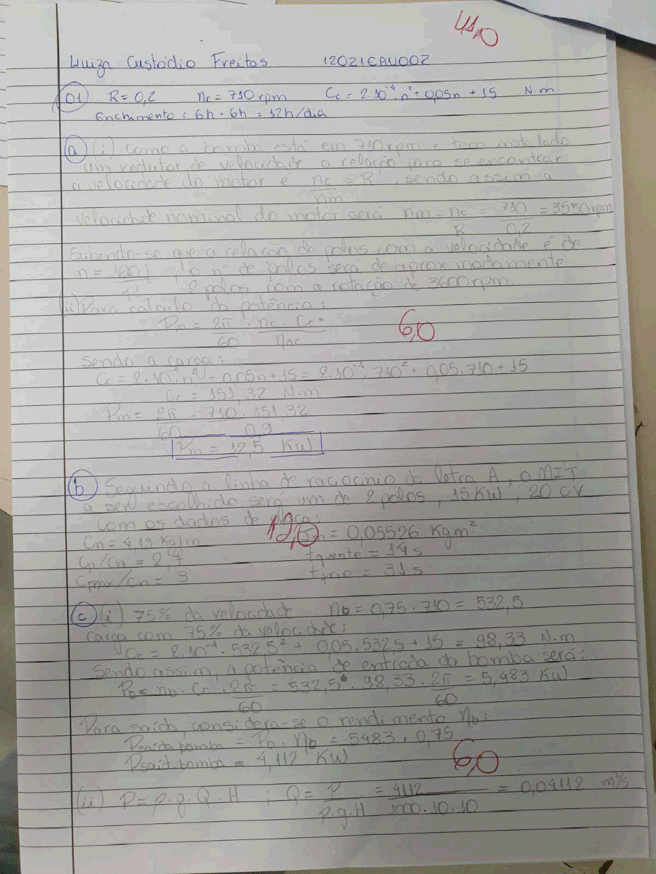 41,0
Luiza Custódio Freitas 12021EAU002
01 R = 0,2 nc = 710 rpm Cc = 2.10⁻⁴.n² + 0,05n + 15 N.m
Enchimento = 6h + 6h = 12h/dia
a (i) Como a bomba está em 710 rpm e tem instalado
um redutor de velocidade a relação para se encontrar
a velocidade do motor é nc/nm = R, sendo assim a
velocidade nominal do motor será nm = nc/R = 710/0,2 = 3550 rpm
Sabendo-se que a relação de polos com a velocidade é de
n = 120f/P, o nº de polos será de aproximadamente
2 polos com a rotação de 3600 rpm.
(ii) Para cálculo da potência:
Pm = 2π/60 . nc . Cc
6,0
sendo a carga:
Cc = 2.10⁻⁴n² + 0,05n + 15 = 2.10⁻⁴.710² + 0,05.710 + 15
Cc = 151,32 N.m
Pm = 2π/60 . 710 . 151,32/0,9
Pm = 12,5 KW
b Seguindo a linha de raciocínio da letra A, o MIT
a ser escolhido será um de 2 polos, 15 KW, 20 CV
com os dados de placa:
12,0
Cn = 4,13 = 0,05526 Kgm²
Cp/Cn = 2, tquente = 14s
/Cn = 3 tfrio = 31s
c (i) 75% da velocidade nb = 0,75.710 = 532,5
Carga com 75% da velocidade:
Cc = 2.10⁻⁴.532,5² + 0,05.532,5 + 15 = 98,33 N.m
Sendo assim, a potência de entrada da bomba será:
Pb = nb . Cc . 2π/60 = 532,5 . 98,33 . 2π/60 = 5,483 KW
Para saída, considera-se o rendimento ηb:
Psaída bomba = Pb . ηb = 5483 . 0,75
Psaída bomba = 4,112 KW
6,0
(ii) P = ρ.g.Q.H ; Q = P/ρ.g.H = 4112/1000.10.10 = 0,04112 m³/s